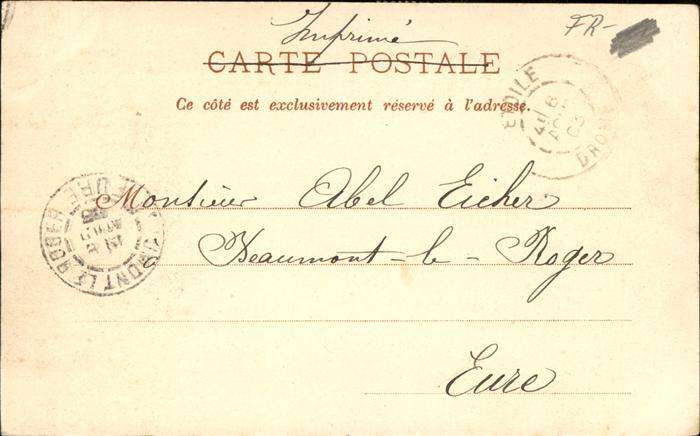 Imprimé
FR-
CARTE POSTALE
Ce côté est exclusivement réservé à l'adresse.
ETOILE
6
03
DROME
Monsieur Abel Eicher
Beaumont-le-Roger
Eure
MONT LE ROGER
EURE